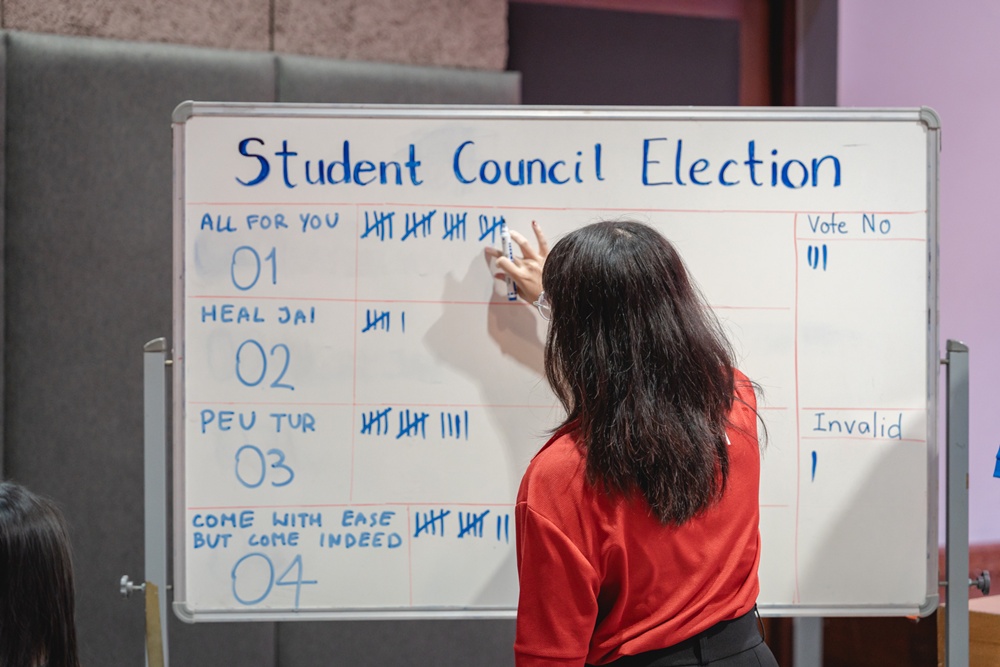 Student Council Election
ALL FOR YOU
01
Vote No
HEAL JAI
02
PEU TUR
03
Invalid
COME WITH EASE
BUT COME INDEED
04